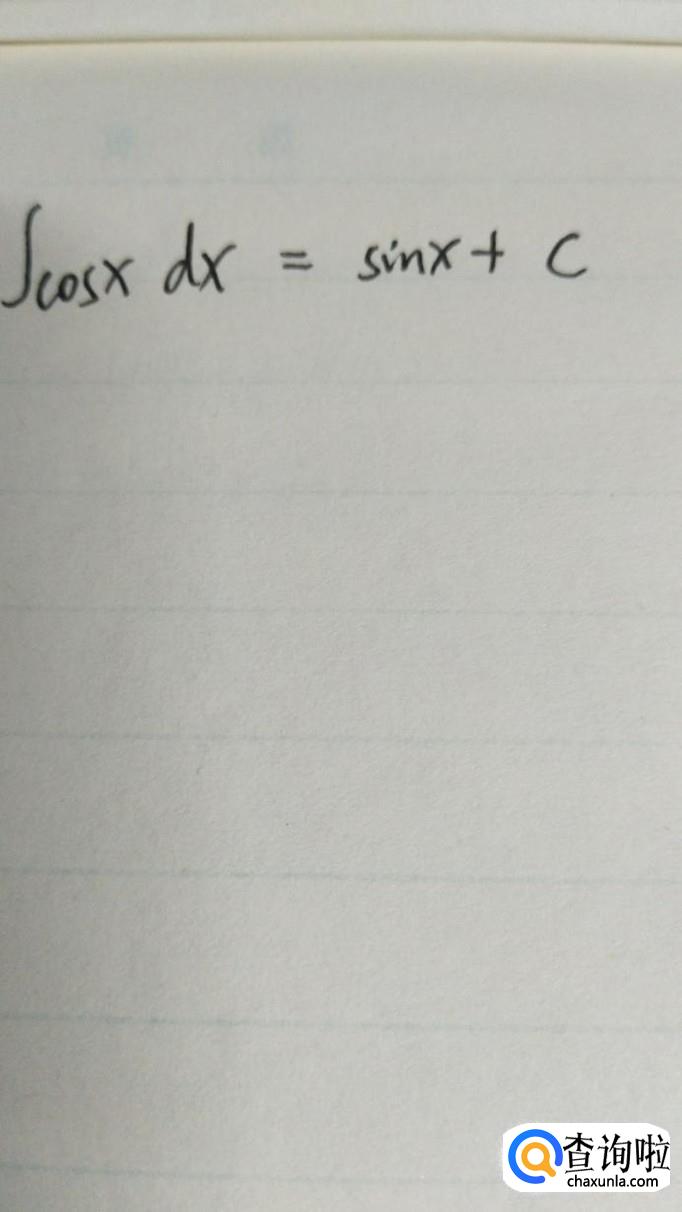 ∫cosx dx = sinx + C
查询啦
chaxunla.com